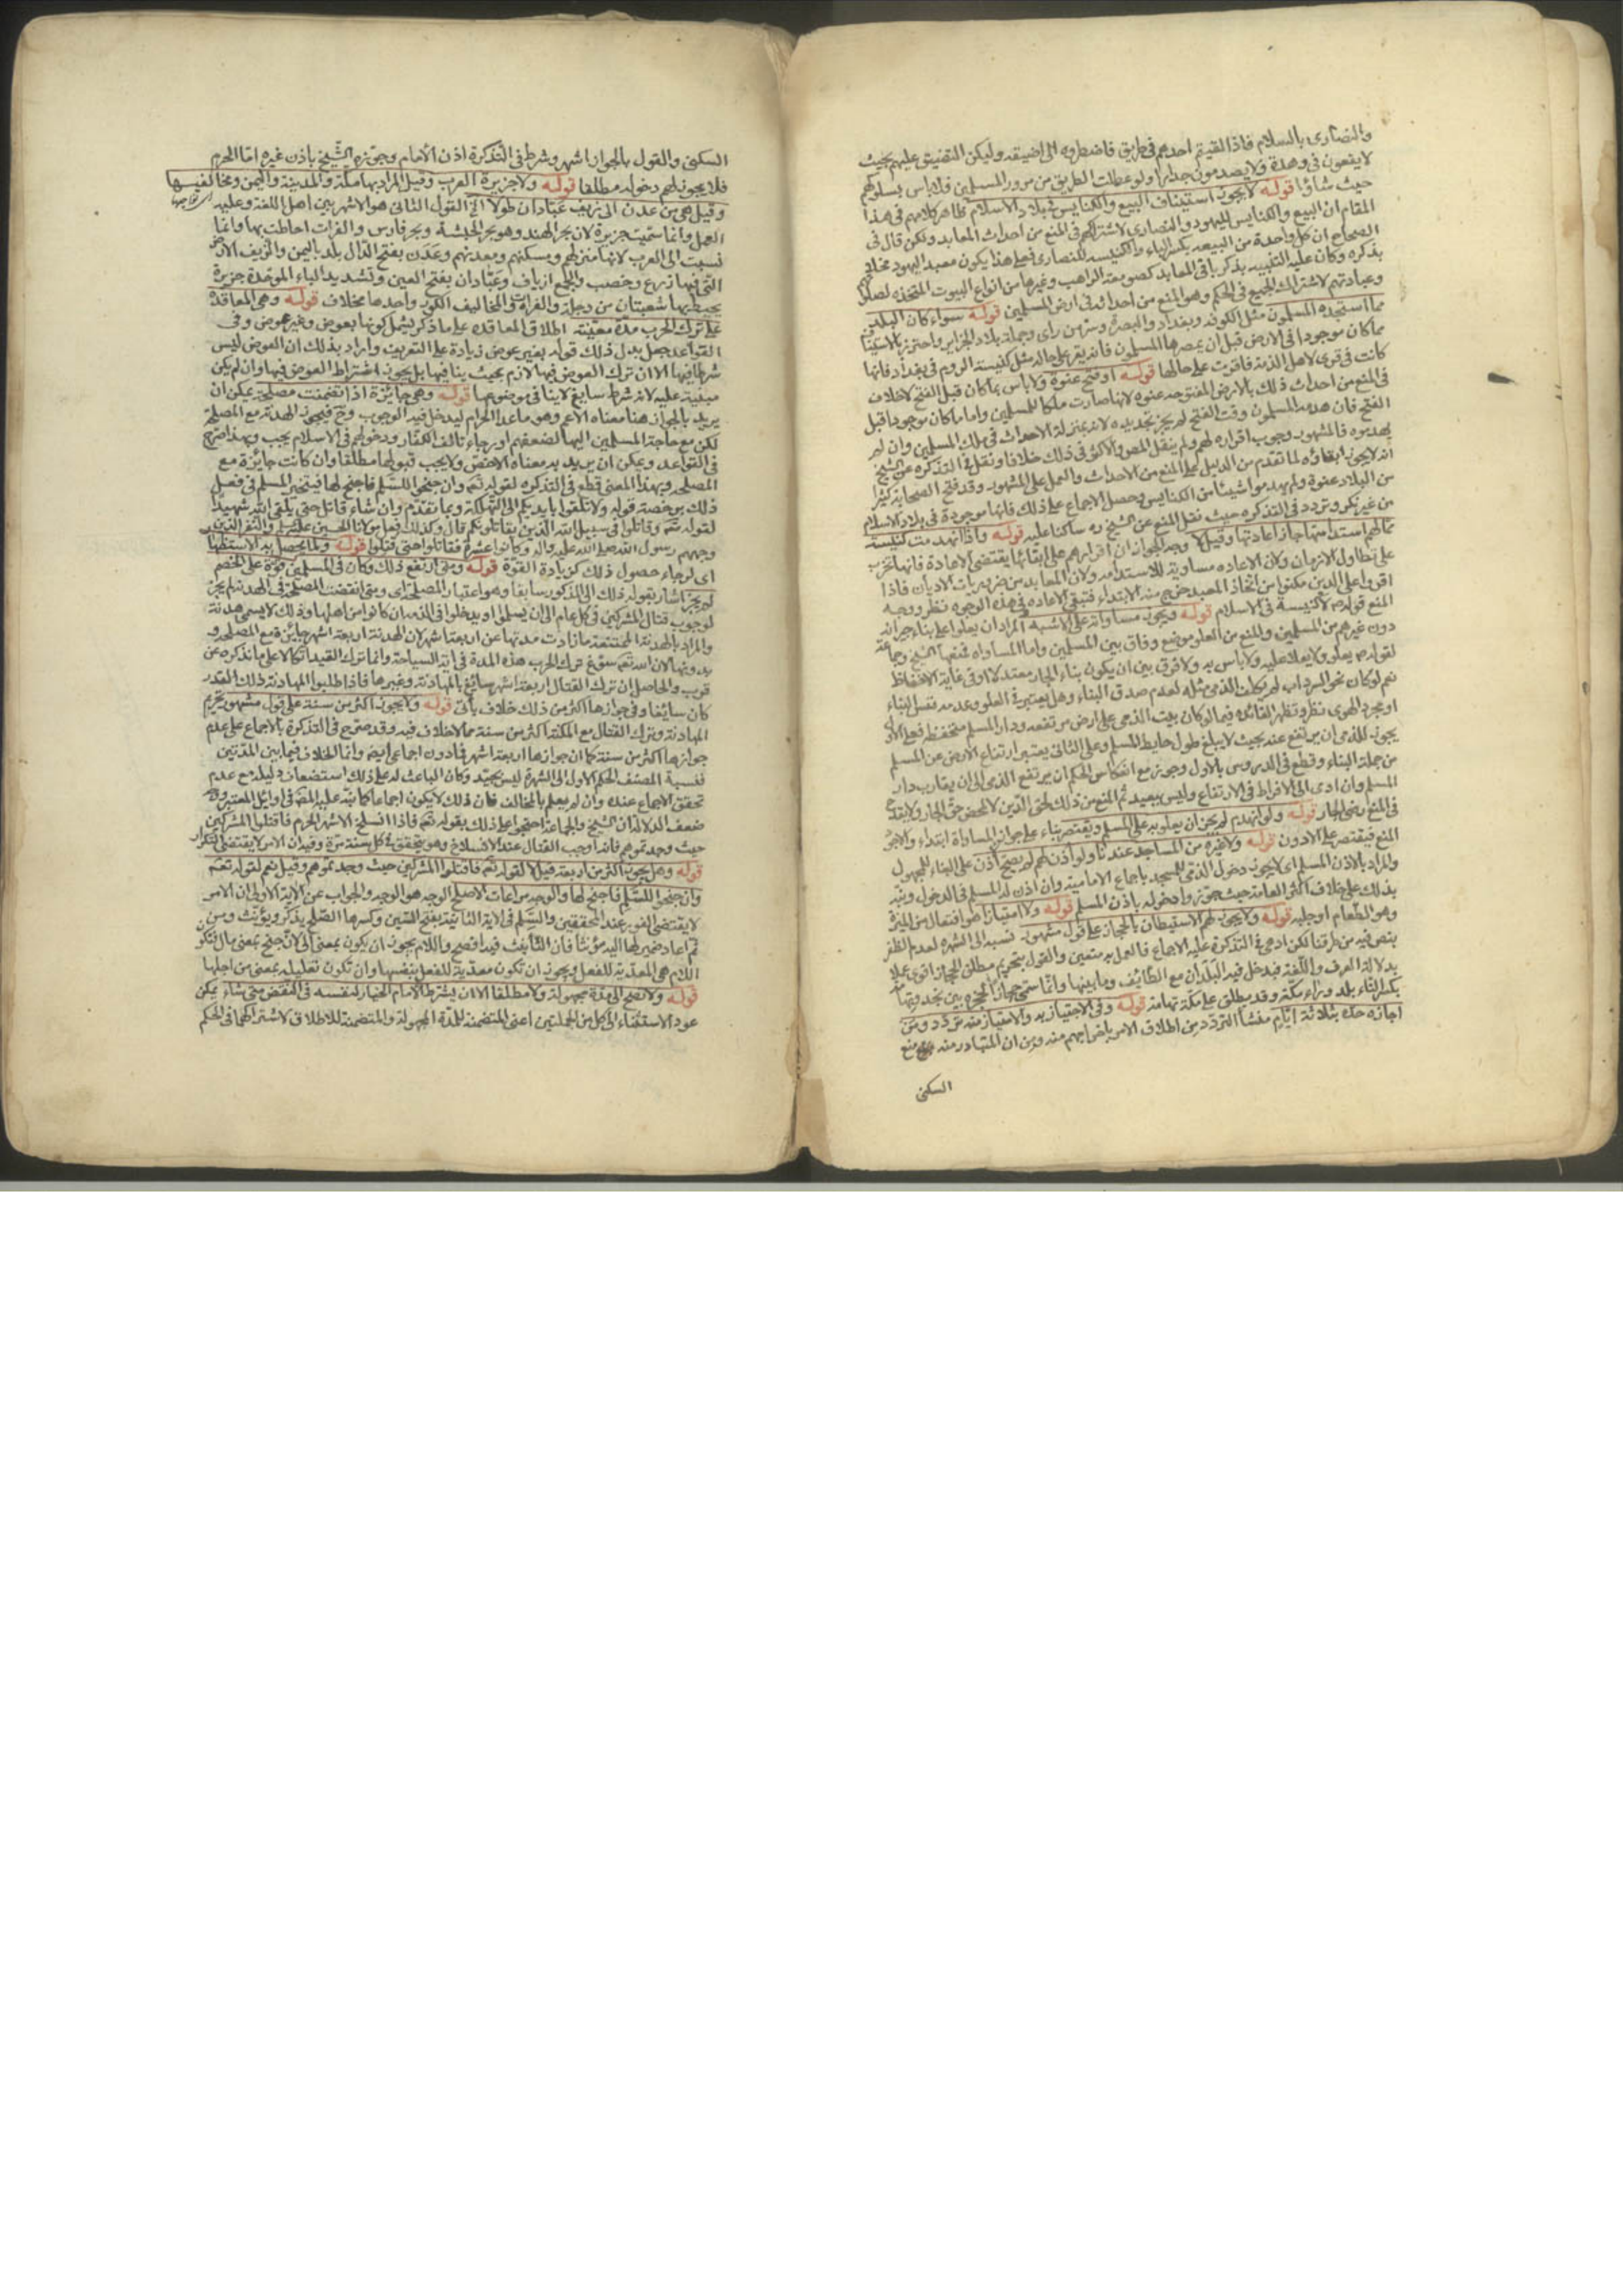 والنصارى بالسلام فاذا لقيتم احدهم في طريق فاضطروه الى اضيقه وليكن التضييق عليهم بحيث
لا يقعون في وهدة ولا يصدمون جدارا ولو عطلت الطريق من مرور المسلمين فلا باس بسلوكهم
حيث شاؤا قوله لا يجوز استيناف البيع والكنايس في بلاد الاسلام ظاهر كلامهم في هذا
المقام ان البيع والكنايس لليهود والنصارى لاشتراكهم في المنع من احداث المعابد ولكن قال في
الصحاح ان كل واحدة من البيعه بكسر الباء والكنيسه للنصارى فعلى هذا يكون معبد اليهود
بذكره وكان عليه التنبيه بذكر باقي المعابد كصومعة الراهب وغيرها من انواع البيوت المتخذه
وعبادتهم لاشتراك الجميع في الحكم وهو المنع من احداث في ارض المسلمين قوله سواء كان البلد
مما استجده المسلمون مثل الكوفه وبغداد والبصرة وسر من راى وجملة بلاد الجزاير واحترز بالاستيناف
مما كان موجودا في الارض قبل ان يمصرها المسلمون فانه يقر على حاله مثل كنيسة الروم في بغداد فانها
كانت في قرى لاهل الذمة فاقرت على حالها قوله او فتح عنوة ولا باس بما كان قبل الفتح لا خلاف
في المنع من احداث ذلك بالارض المفتوحه عنوه لانها صارت ملكا للمسلمين واما ما كان موجودا قبل
الفتح فان هدمه المسلمون وقت الفتح لم يجز تجديده لانه بمنزلة الاحداث في ملك المسلمين وان لم
يهدموه فالمشهور وجوب اقراره لهم ولم ينقل المص والاكثر في ذلك خلافا ونقل في التذكره عن الشيخ
انه لا يجوز ابقاؤه لما تقدم من الدليل على المنع من الاحداث والعمل على المشهور وقد فتح الصحابه كثيرا
من البلاد عنوة ولم يهدموا شيئا من الكنايس وحصل الاجماع على ذلك فانها موجودة في بلاد الاسلام
من غير نكر وتردد في التذكره حيث نقل المنع عن الشيخ ره ساكتا عليه قوله واذا انهدمت كنيسة
مما لهم استدامتها جاز اعادتها وقيل لا وجه الجواز ان اقرارهم على ابقائها يقتضي الاعادة فانها تخرب
على تطاول الازمان ولان الاعاده مساوية للاستدامه ولان المعابد من ضروريات الاديان فاذا
اقروا على الدين مكنوا من اتخاذ المعبد خرج منه الابتداء فتبقى الاعاده في هذه الوجوه نظر ووجه
المنع قوله ص لا كنيسة في الاسلام قوله ويجوز مساواته على الاشبه المراد ان يعلوا على بناء جيرانه
دون غيرهم من المسلمين والمنع من العلو موضع وفاق بين المسلمين واما المساواه فمنعها الشيخ وجماعة
لقوله ص يعلو ولا يعلا عليه ولا باس به ولا فرق بين ان يكون بناء الجار معتدلا او في غاية الانخفاظ
نعم لو كان نحو السرداب لم يكلف الذمى مثله لعدم صدق البناء وهل يعتبر في العلو وعدمه نفس البناء
او مجرد الهوى نظر وتظهر الفائده فيما لو كان بيت الذمى على ارض مرتفعه ودار المسلم منخفظة فعلى الاول
يجوز للذمى ان يرتفع عنه بحيث لا يبلغ طول حايط المسلم وعلى الثانى يعتبر ارتفاع الارض عن المسلم
من جملة البناء وقطع في الدروس بالاول وجوز مع انعكاس الحكم ان يرتفع الذمى الى ان يقارب دار
المسلم وان ادى الى الافراط في الارتفاع وليس ببعيد ثم المنع من ذلك لحق الدين لا لمحض حق الجار ولا يقدح
في المنع رضى الجار قوله ولو انهدم لم يجز ان يعلو به على المسلم ويقتصر بناء على جواز المساواة ابتداء والاجود
المنع فيقتصر على الادون قوله ولا غيره من المساجد عندنا ولو اذن لهم لم يصح اذن على البناء للمجهول
والمراد بالاذن المسلم اى لا يجوز دخول الذمى للمسجد باجماع الامامية وان اذن له المسلم في الدخول ونبه
بذلك على خلاف اكثر العامة حيث جوزوا دخوله باذن المسلم قوله ولا امتيارا هو افتعال من الميرة
وهو الطعام او جلبه قوله ولا يجوز لهم الاستيطان بالحجاز على قول مشهور نسبه الى الشهره لعدم الظفر
بنص فيه من طرقنا لكن ادعى في التذكرة عليه الاجماع فالعمل به متعين والقول بتحريم مطلق الحجاز اقوى عملا
بدلالة العرف واللغة فيدخل فيه البلدان مع الطايف وما بينها وانما سمى حجازا لحجزه بين نجد وتهامة
بكسر التاء بلد وراء مكة وقد يطلق على مكة تهامة قوله وفى الاجتياز به والامتياز منه تردد ومن
اجازه حده بثلاثة ايام منشأ التردد من اطلاق الامر باخراجهم منه ومن ان المتبادر منه منع
السكنى
السكنى والقول بالجواز اشهر وشرط في التذكرة اذن الامام وجوزه الشيخ باذن غيره اما الحرم
فلا يجوز لهم دخوله مطلقا قوله ولا جزيرة العرب وقيل المراد بها مكة والمدينة واليمن ومخاليفها
وقيل هى من عدن الى ريف عبادان طولا الخ القول الثانى هو الاشهر بين اهل اللغة وعليه
العمل وانما سميت جزيرة لان بحر الهند وهو بحر الحبشة وبحر فارس والفرات احاطت بها وانما
نسبت الى العرب لانها منزلهم ومسكنهم ومعدنهم وعدن بفتح الدال بلد باليمن والريف الارض
التى فيها زرع وخصب والجمع ارياف وعبادان بفتح العين وتشديد الباء الموحدة جزيرة
يحيط بها شعبتان من دجلة والفرات والمخاليف الكور واحدها مخلاف قوله وهى المعاقدة
على ترك الحرب مدة معينة اطلاق المعاقده على ما ذكر يشمل كونها بعوض وغير عوض وفى
القواعد جعل بدل ذلك قوله بغير عوض زيادة على التعريف واراد بذلك ان العوض ليس
شرطا فيها الا ان ترك العوض فيها لازم بحيث ينافيها بل يجوز اشتراط العوض فيها وان لم يكن
مبنية عليه لانه شرط سايغ لا ينافى موضوعها قوله وهى جايزة اذا تضمنت مصلحة يمكن ان
يريد بالجواز هنا معناه الاعم وهو ما عدا الحرام ليدخل فيه الوجوب وح فيجوز الهدنة مع المصلحة
لكن مع حاجة المسلمين اليها لضعفهم او رجاء تالف الكفار ودخولهم في الاسلام يجب وبهذا صرح
في القواعد ويمكن ان يريد به معناه الاخص ولا يجب قبولها مطلقا وان كانت جائزة مع
المصلحه وبهذا المعنى قطع في التذكره لقوله تعه وان جنحوا للسلم فاجنح لها فيتخير المسلم في فعل
ذلك برخصة قوله ولا تلقوا بايديكم الى التهلكة وبما تقدم وان شاء قاتل حتى يلقى الله شهيدا
لقوله تعه وقاتلوا في سبيل الله الذين يقاتلونكم قال وكذلك فعل مولانا الحسين عليه السلم والنفر الذين
وجههم رسول الله صلى الله عليه واله وكانوا عشرة فقاتلوا حتى قتلوا قوله ولما يحصل به الاستظهار
اى لرجاء حصول ذلك كزيادة القوة قوله ومتى ارتفع ذلك وكان في المسلمين قوة على الخصم
لم يجز اشار بقوله ذلك الى المذكور سابقا وهو اعتبار المصلحة اى ومتى انقضت المصلحة في الهدنه لم يجز
لوجوب قتال المشركين في كل عام الى ان يسلموا او يدخلوا في الذمه ان كانوا من اهلها وذلك لا يسمى هدنة
والمراد بالهدنة الممتنعة ما زادت مدتها عن اربعة اشهر لان الهدنة اربعة اشهر جائزة مع المصلحه و
بدونها لان الله تعه سوغ ترك الحرب هذه المدة في اية السياحة وانما ترك القيد اتكالا على ما نذكره عن
قرب والحاصل ان ترك القتال اربعة اشهر سائغ بالمهادنة وغيرها فاذا طلبوا المهادنة ذلك القدر
كان سايغا وفى جوازها اكثر من ذلك خلاف يأتى قوله ولا يجوز اكثر من سنة على قول مشهور تحريم
المهادنة وترك القتال مع المكنة اكثر من سنة مما لا خلاف فيه وقد صرح في التذكرة بالاجماع على عدم
جوازها اكثر من سنة كما ان جوازها اربعة اشهر فما دون اجماعى ايضه وانما الخلاف فيما بين المدتين
فنسبة المصنف الحكم الاول الى الشهرة ليس بجيد وكان الباعث له على ذلك استضعاف دليله مع عدم
تحقق الاجماع عنده وان لم يعلم بالمخالف فان ذلك لا يكون اجماعا كما نبه عليه المص في اوايل المعتبر ووجه
ضعف الدلالة ان الشيخ والجماعة احتجوا على ذلك بقوله تعه فاذا انسلخ الاشهر الحرم فاقتلوا المشركين
حيث وجدتموهم فانه اوجب القتال عند الانسلاخ وهو يتحقق في كل سنة مرة وفيه ان الامر لا يقتضى التكرار
قوله وهل يجوز اكثر من اربعة قيل لا لقوله تعه فاقتلوا المشركين حيث وجدتموهم وقيل نعم لقوله تعه
وان جنحوا للسلم فاجنح لها والوجه مراعات الاصلح الوجه هو الوجه والجواب عن الاية الاولى ان الامر
لا يقتضى الفور عند المحققين والسلم في الاية الثانية بفتح السين وكسرها الصلح يذكر ويؤنث ومن
ثم اعاد ضمير لها اليه مؤنثا فان التأنيث فيه افصح واللام يجوز ان يكون بمعنى الى لان جنح بمعنى مال فتكون
اللام هى المعدية للفعل ويجوز ان تكون معدية للفعل بنفسها وان تكون تعليلية بمعنى من اجلها
قوله ولا تصح الى مدة مجهولة ولا مطلقا الا ان يشترط الامام الخيار لنفسه في النقض متى شاء يمكن
عود الاستثناء الى كل من الجملتين اعنى المتضمنة للمدة المجهولة والمتضمنة للاطلاق لاشتراكهما في الحكم